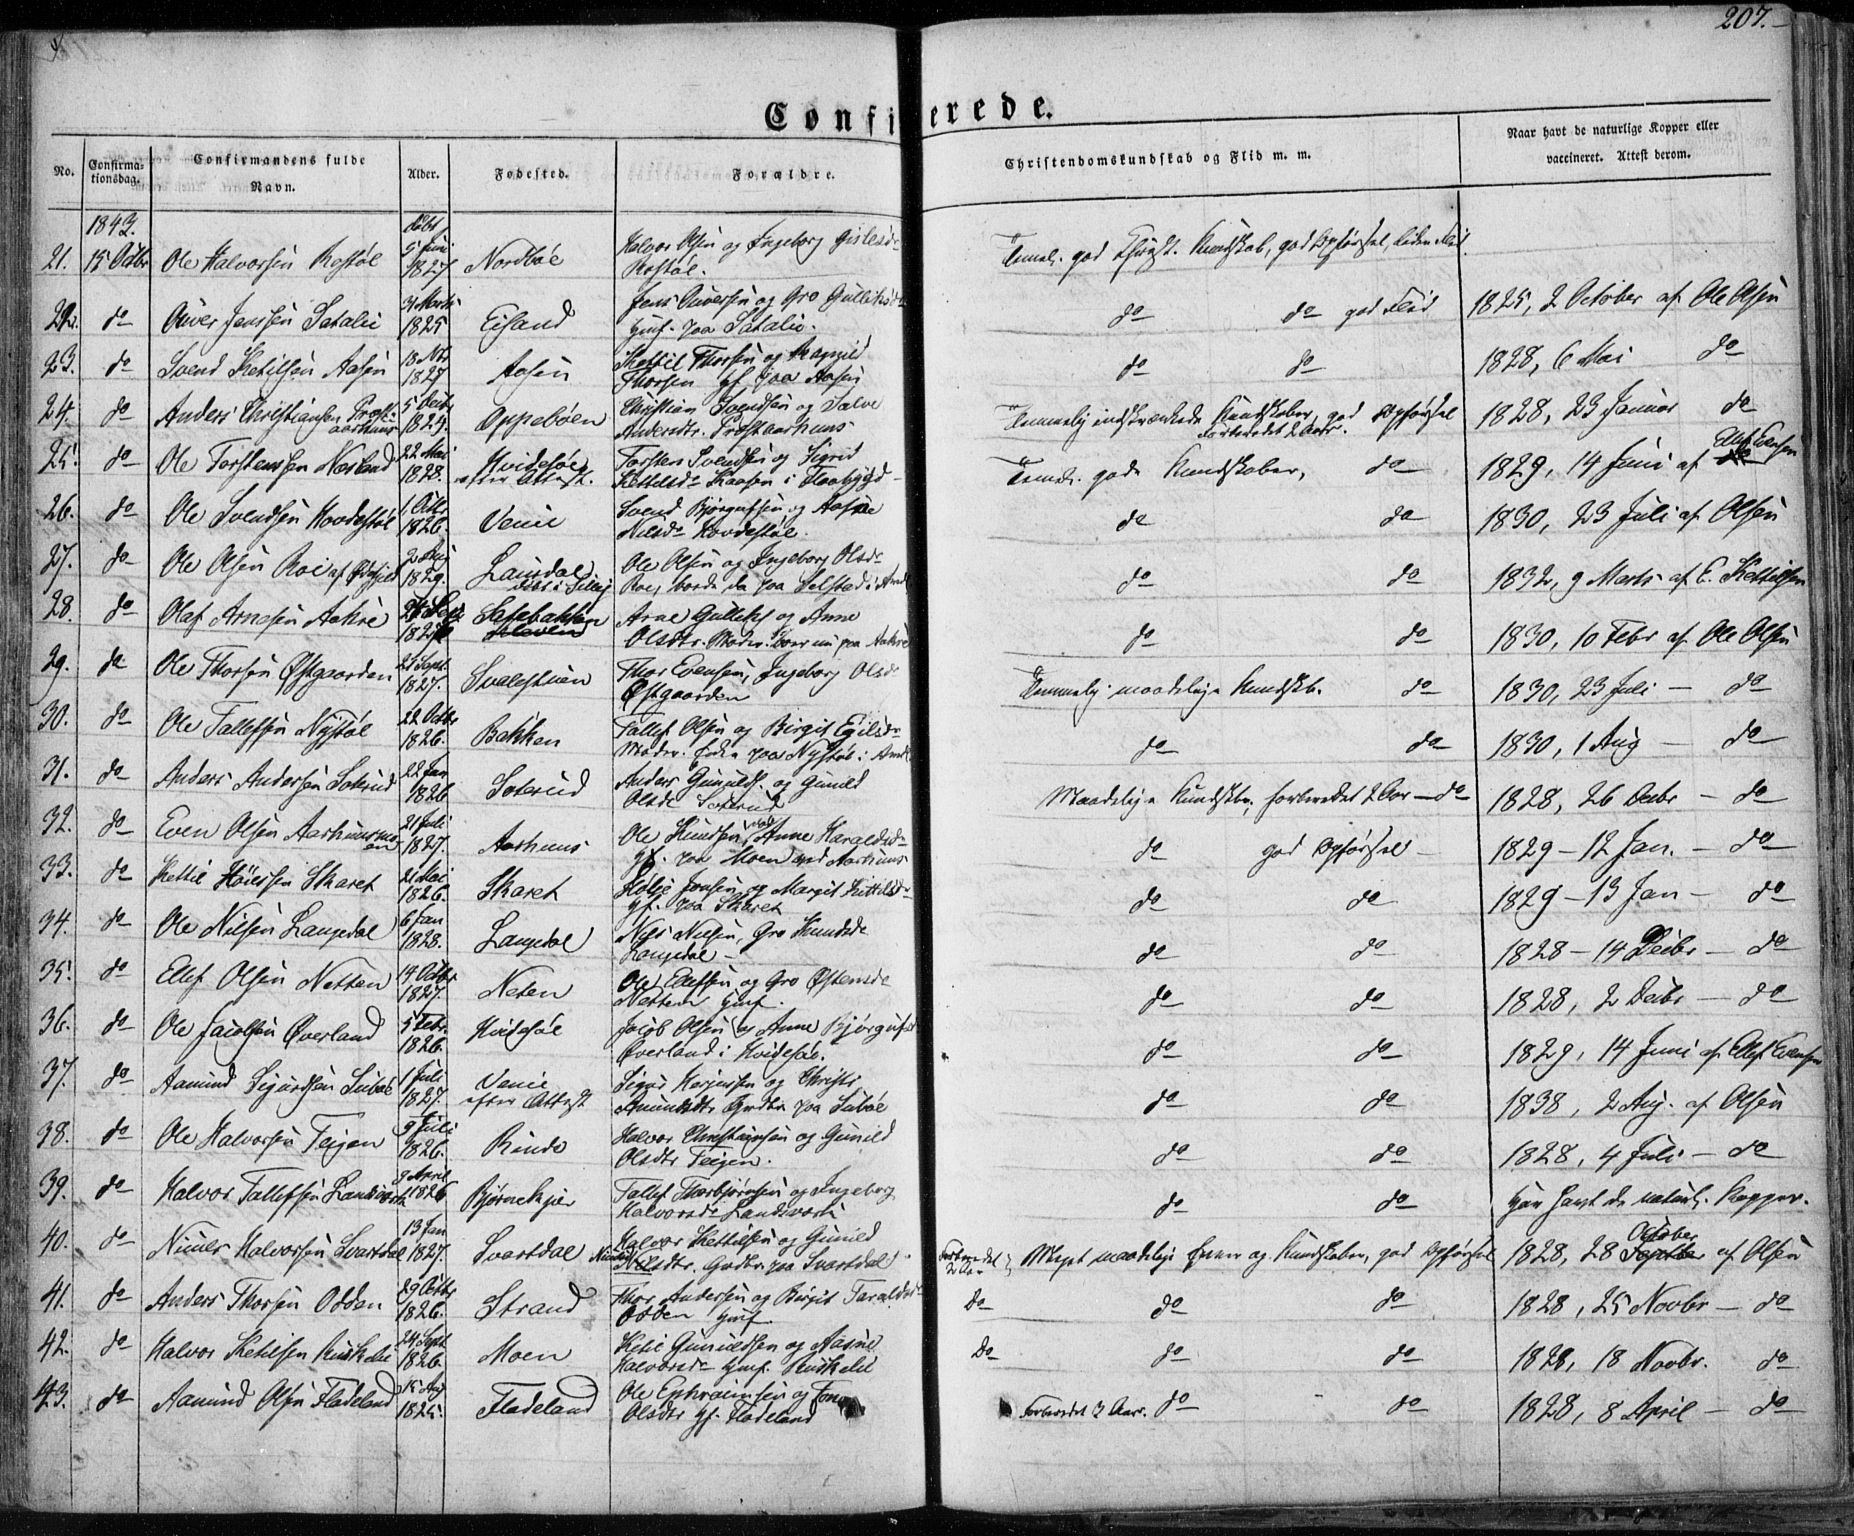 207.
Confirerede.
No.
Confirma-
tionsdag.
Confirmandens fulde
Navn.
Alder.
Fødested.
Forældre.
Christendomskundskab og Flid m. m.
Naar havt de naturlige Kopper eller
vaccineret. Attest derom.
1843. døbt
21. 15 Octbr Ole Halvorsen Rostøl 5 Juni 1827. Nordbøe Halvor Olsen og Ingeborg Gislesdr
Rostøl. Temel. god Christ. Kundskab, god Opførsel, liden Flid.
22. do Onver Jenssen Satalie 31 Marts 1825 Eiland Jens Onversen og Gro Gulliksdr
Gmf. paa Satalie. do do god Flid 1825, 2 October af Ole Olsen
23. do Svend Ketilsen Aasen 18 Nov 1827 Aasen Kettil Thorsen og Aagnild
Thorsen gf. paa Aasen do do 1828, 6 Mai do
24. do Anders Christiansen Prest-
aarhuus 5 1824. Oppebøen Christian Svendsen og Salve
Andersdtr. Præstaarhuus Temmelig indskrænkede Kundskaber, god Opførsel
Forberedet 2 Aar. 1828, 23 Januar do
25. do Ole Torstenssen Næsland 22 Mai 1828. Hvidesøe
efter Attest. Torsten Svendsen og Sigrid
Kettelsdr Kaasen i Flaabygd Temel. gode Kundskaber, do 1829, 14 Juni af Ellef Evensen
26. do Ole Svendsen Hovdestøl 1 Octr 1826. Venie Svend Bjørgufsen og Aasne
Nilsdr Hovdestøl. do do 1830, 23 Juli af Olsen
27. do Ole Olsen Roi af 2 Aug 1829. Laurdal
Ole Olsen og Ingeborg Olsdr
do do 1832, 9 Marts af E. Kettilsen
28. do Olaf Arnesen Aakre Arne Gulliks og Anne
Olsdtr. do do 1830, 10 Febr af Ole Olsen
29. do Ole Thorsen Østgaarden 27 Sept. 1827. Svalestuen Thor Evensen, Ingeborg Olsdr
Østgaarden Temmelig maadelige Kundsk. do 1830, 23 Juli — do
30. do Ole Tallefsen Nystøl 22 Octbr 1826. Bakken Tallef Olsen og Birgit Egilsdr
paa Nystøl do do 1830, 1 Aug — do
31. do Anders Andersen Soterud 22 Jan 1826 Soterud Anders Gunulfs. og Gunild
Olsdr Soterud Maadelige Kundskbr, forberedet 2 Aar — do 1828, 26 Decbr — do
32. do Even Olsen Aarhuusmo-
en 21 Juli 1827. Aarhuus Ole Knudsen Anne Haraldsdr
gf. paa Moen ved Aarhuus do god Opførsel 1829 — 12 Jan. — do
33. do Kettil Høiessen Skaret 21 Mai 1826. Skaret Hølje Jonsen og Margit Kittilsdr
gf. paa Skaret do do 1829 — 13 Jan — do
34. do Ole Nilsen Langedal 6 Jan 1828. Langedal Nils Nilsen, Gro Knudsdr
Langedal — do do 1828 — 14 Decbr — do
35. do Ellef Olsen Netten 14 Octbr 1827. Neten Ole Ellefsen og Gro Østensdr
Netten gmf. do do 1828, 2 Decbr — do
36. do Ole Jacobsen Øverland 5 Febr. 1826. Hvidesøe Jacob Olsen og Anne Bjørgufsd
Øverland i Hvidesøe. do do 1829, 14 Juni af Ellef Evensen
37. do Aamund Sigurdsen Subøe 1 Juli 1827. Venie
efter Attest Sigur Herjusen og Christi
Amundsdtr Gmf paa Subøe do do 1838, 2 Aug. af Olsen
38. do Ole Halvorsen Teigen 9 Juli 1826. Rinde Halvor Christensen og Gunild
Olsdtr Teigen. do do 1828, 4 Juli — do
39. do Halvor Tallefsen Landsverk 9 April 1826 Bjørnekjær Tallef Thorbjørnsen og Ingeborg
Halvorsdr Landsverk do do har havt de naturl. Kopper.
40. do Niculs Halvorsen Svartdal 13 Jan 1827. Svartdal Halvor Kettilsen og Gunild
Nilsdtr. paa Svartdal Forberedet
2 Aar Meget maadelige Evner og Kundskaber, god Opførsel 1828, 28 October af Olsen
41. do Anders Thorsen Odden 29 Octbr 1826. Strand Thor Andersen og Birgit Taraldsdr
Odden gmf. Do do do 1828, 25 Novbr — do
42. do Halvor Ketilsen Kuskelie 24 Sept 1826. Moen Ketil Gunuldsen og Aasne
Halvorsdr gmf. Kuskelie Do do do 1828, 18 Novbr. do
43. do Aamund Olsen Fladeland 15 Aug 1825. Fladeland Ole Ephraimsen og Tone
Olsdtr gf. Fladeland Forberedet 3 Aar. do do 1828, 8 April — do